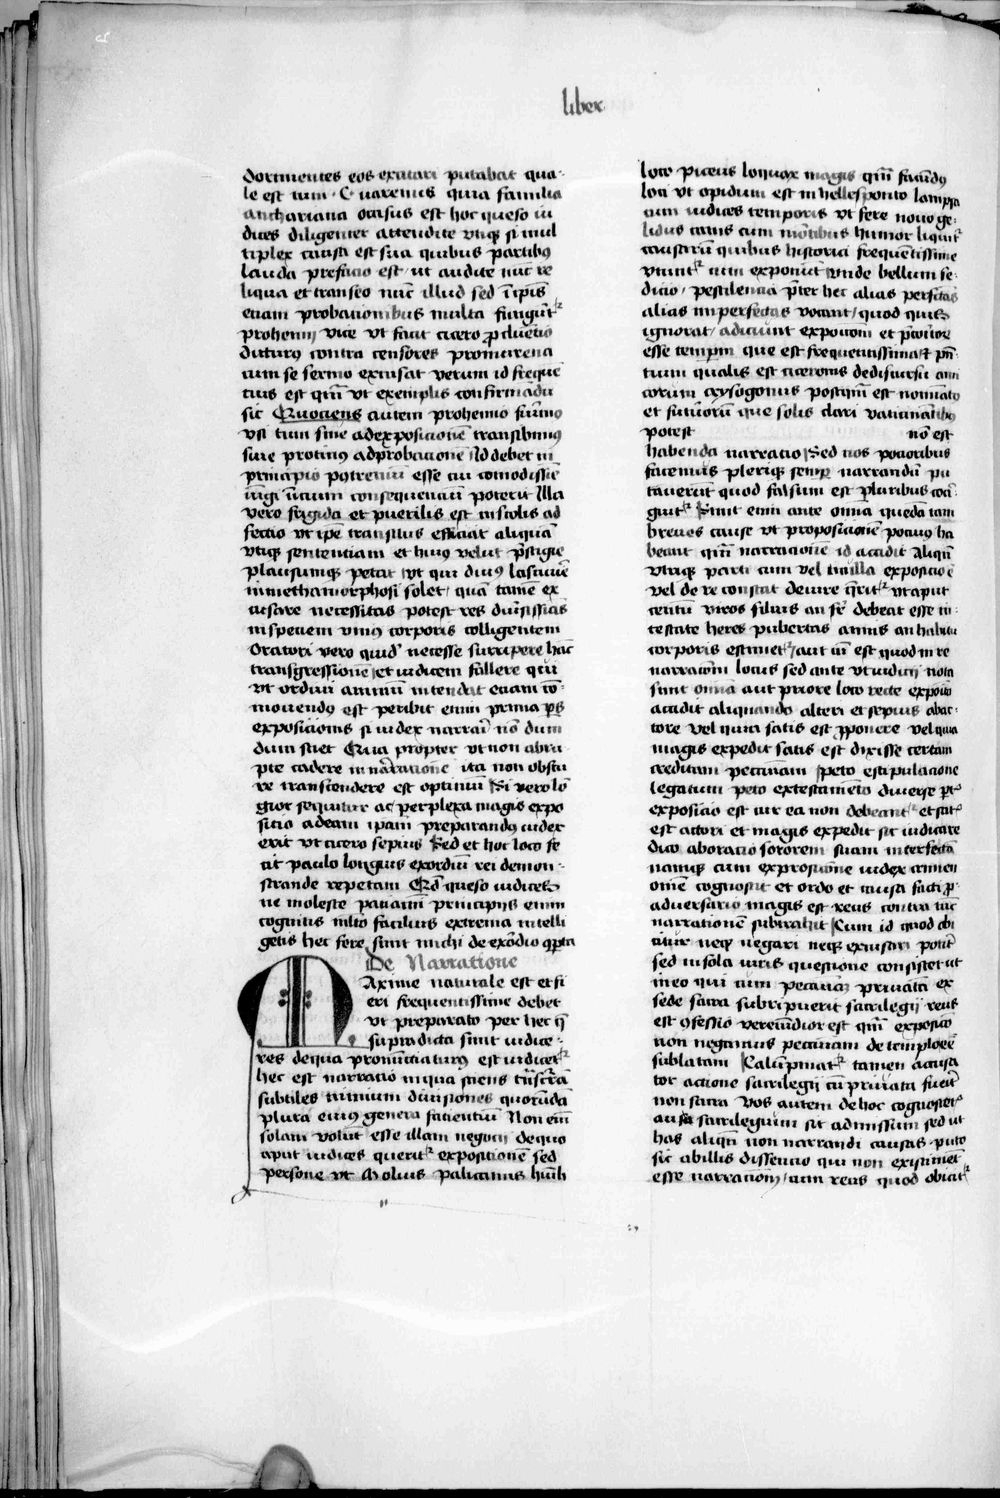 liber
dormientes eos excitari putabat qua-
le est tum C varenus quia familia
anchariana occisus est hoc queso iu
dices diligenter attendite vtiqʒ si mul
tiplex causa est sua quibus partibꝰ
lauda prefacio est ut audite nūc re
liqua et transeo nūc illud sed ī ip̄is
etiam probationibus multa fungūt᷑
prohemij vice vt facit cicero ꝓ cluētio
dicturꝰ contra censores promurena
cum se seruio excusat verum id freque
tius est qm̄ vt exemplis confirmādū
sic Quociens autem prohemio fūimꝰ
vsi tum siue adexposicionē transibimꝰ
siue protinꝰ adprobacionē Id debet in
principio postremū esse cui comodissīe
iūgi īicium consequenciū poterit Illa
vero frigida et puerilis est inscolis ad
fectio vt ipē transitus efficiat aliquā
vtiqʒ sententiam et huiꝰ velut p̄stigie
plausumqʒ petat vt qui diuꝰ lasciuīe
inmethamorphosi solet quā tamē ex
cusare necessitas potest res diūsissiās
inspeciem vniꝰ corporis colligentem
Oratori vero quid necesse surripere hāc
transgressionē et iudicem fallere qui
vt ordini animū intendat eciam cō-
monendꝰ est peribit enim prima ꝑs
exposicionis si iudex narrari nō dum
dum sciet Qua propter vt non abru
pte cadere in narracionē ita non obscu
re transcendere est optimū Si vero lō
gior sequitur ac perplexa magis expo
sitio adeam ipam preparandꝰ iudex
erit vt cicero sepius Sed et hoc loco fe
cit paulo longius exordiū rei demon-
strande repetam Qd̄ queso iudices
ne moleste paciam̄ principijs enim
cognitis mlto facilius extrema intelli
getis hec fere sunt michi de exordio ꝯꝑta
De Narratione
Maxime naturale est et fi
eri frequentissime debet
vt preparato per hec q̄
supradicta sunt iudice
res dequa pronunciaturꝰ est iudicet᷑
hec est narratio inqua sciens
subtiles nimium diuisiones quorūdā
plura eiusꝰ genera facientiū Non eīm
solam volūt esse illam negocij dequo
aput iudices querit᷑ expositionē sed
persone vt M olius palicanus huīl
loco piceus loquax magis qm̄ facūdꝰ
loci vt opidum est in hellesponto lampsa
cum iudices temporis vt fere nouo ge-
lidus canis cum mōtibus humor liquit᷑
causarū quibus historici frequētissime
vtunt᷑ cum exponūt vnde bellum se-
dicio pestilencia p̄ter hec alias perfctās
alias imperfectas vocant quod quis
ignorat adiciunt exponōm et
esse temp̄m que est frequentissima et p̄n-
tium qualis est ciceronis dedisursū ami
corum crysogonus postqm̄ est nominato
et futurorū que solis dari vaticinātibꝰ
potest nō est
habenda narracio Sed nos pocioribus
faciemus pleriqʒ semꝑ narrandū pu
tauerūt quod falsum est pluribus coa-
guit᷑ Sunt enim ante omnia quedā tam
breues cause vt proposicionē pociꝰ ha
beant qm̄ narracionē id accidit aliqn̄
vtriqʒ parti cum vel nulla exposicio ē
vel de re constat deiure q̄rit᷑ vt aput
centū viros filius an fr̄ debeat esse in-
testate heres pubertas annis an habitu
corporis estimet᷑ aut cū est quod in re
narracōm locus sed ante vt iudici nota
sunt omīa aut priore loco recte exposita
accidit aliquando alteri et sepius abac-
tore vel quia satis est ꝓponere vel quia
magis expedit satis est dixisse certam
creditam pecuniam peto estipulacione
legatum peto extestamēto diuerse ꝑt᷑
exposicio est cur ea non debeant᷑ et sat᷑
est actori et magis expedit sic iudicare
dico aboracio sororem suam interfectā
namqʒ cum exprosiciōne iudex crimen
omē cognoscit et ordo et causa facti ꝓ
aduersario magis est reus contra tūc
narrationē subtrahit Cum id quod obi
citur neqʒ negari neqʒ excusari poterit
sed in sola iuris questione consistet ut
in eo qui cum pecuniā priuatā ex
sede sacra subripuerit sacrilegij reus
est ꝯfessio verecūdior est qm̄ exposicio
non negamus pecuniam de templo eē
sublatam Calūpniat᷑ tamen accusa
tor actione sacrilegij cū priuata fuerit
non sacra vos autem de hoc cognoscet᷑
an sacrilegium sit admissum sed ut
has aliqn̄ non narrandi causas puto
sic abillis dissencio qui non existimēt
esse narrationē cum reus quod obicit᷑